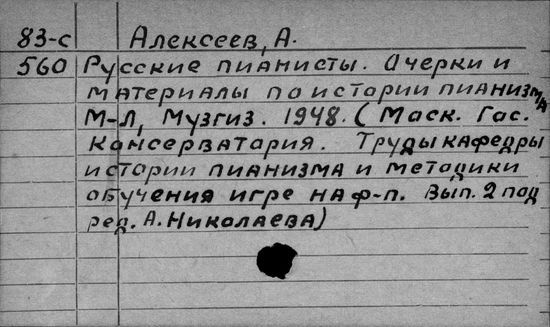 83-с Алексеев, А.
560 Русские пианисты. Очерки и
материалы по истории пианизма
М-Л, Музгиз. 1948. (Моск. Гос.
Консерватория. Труды кафедры
истории пианизма и методики
обучения игре на ф-п. Вып. 2 под
ред. А. Николаева)